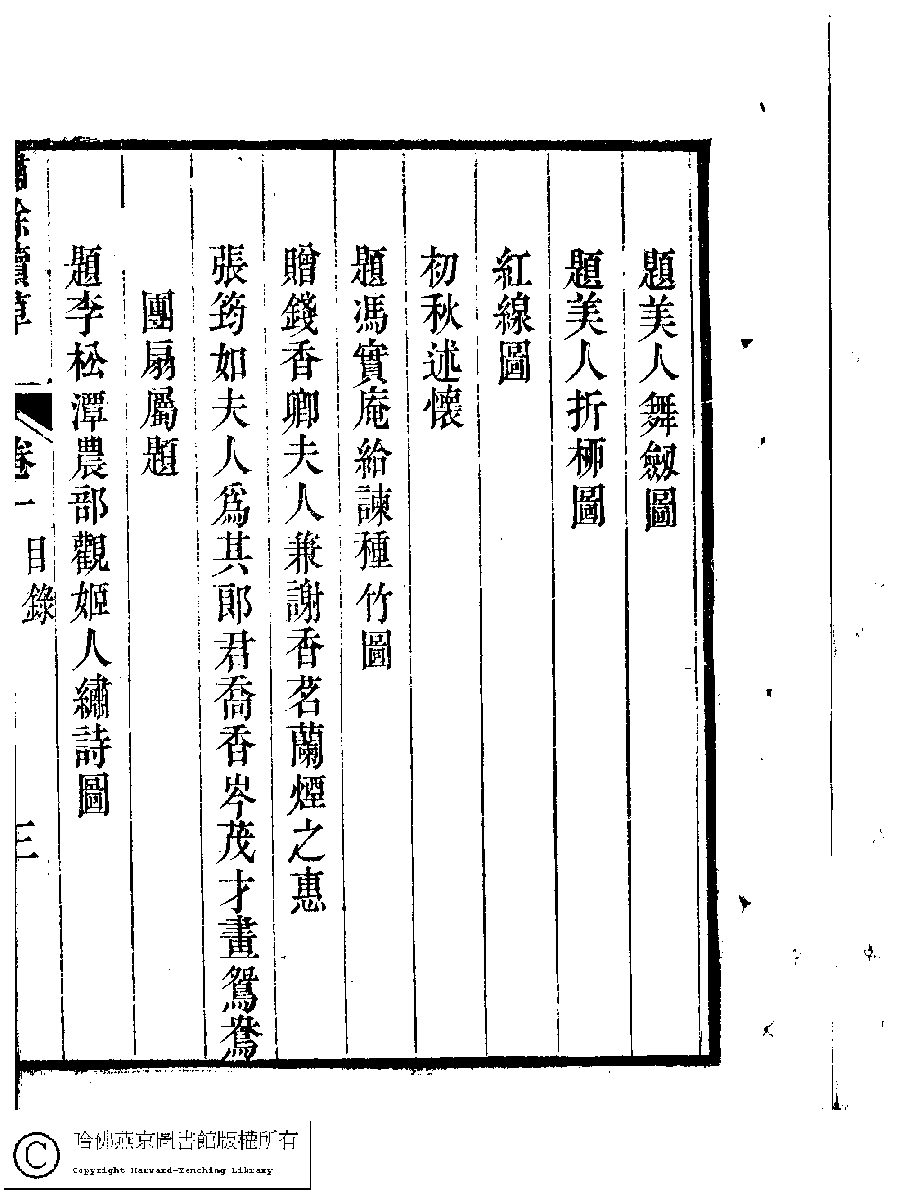 題美人舞劔圖
題美人折桺圖
紅線圖
初秋述懷
題馮實庵給諫種竹圖
贈錢香卿夫人兼謝香茗蘭煙之惠
張筠如夫人爲其郎君喬香岑茂才畫鴛鴦
團扇屬題
題李松潭農部觀姬人繡詩圖
餘續草 卷一 目錄 三
哈佛燕京圖書館版權所有
Copyright Harvard-Yenching Library